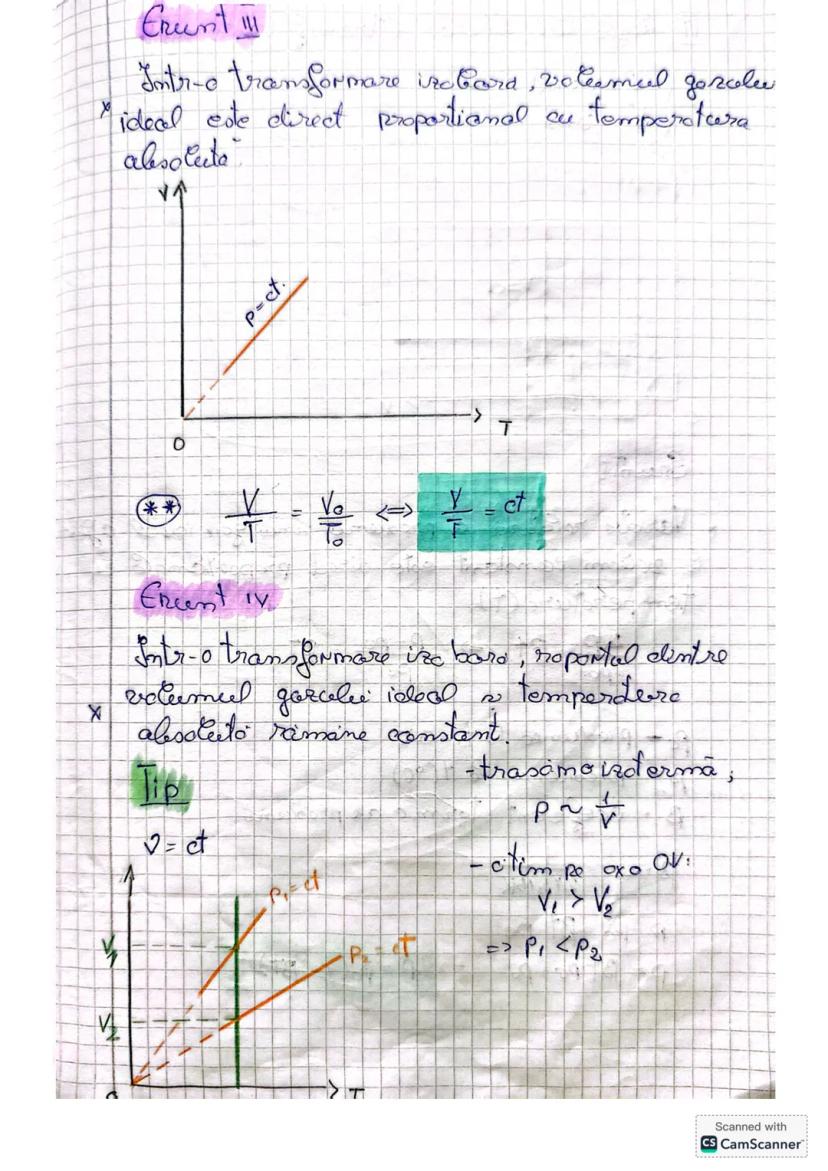 Enunt III
Într-o transformare izobară, volumul gazului
x ideal este direct proportional cu temperatura
absolută
V
p=ct.
T
O
** V/T = V₀/T₀ <=> V/T = ct
Enunt IV
Într-o transformare izobară, raportul dintre
volumul gazului ideal și temperatura
x absolută rămâne constant.
Tip
ν = ct
- trasăm o izotermă;
p ~ 1/V
- citim pe axa OV:
V₁ > V₂
=> P₁ < P₂
P₁ = ct
V₁
P₂ = ct
V₂
T
Scanned with
CS CamScanner